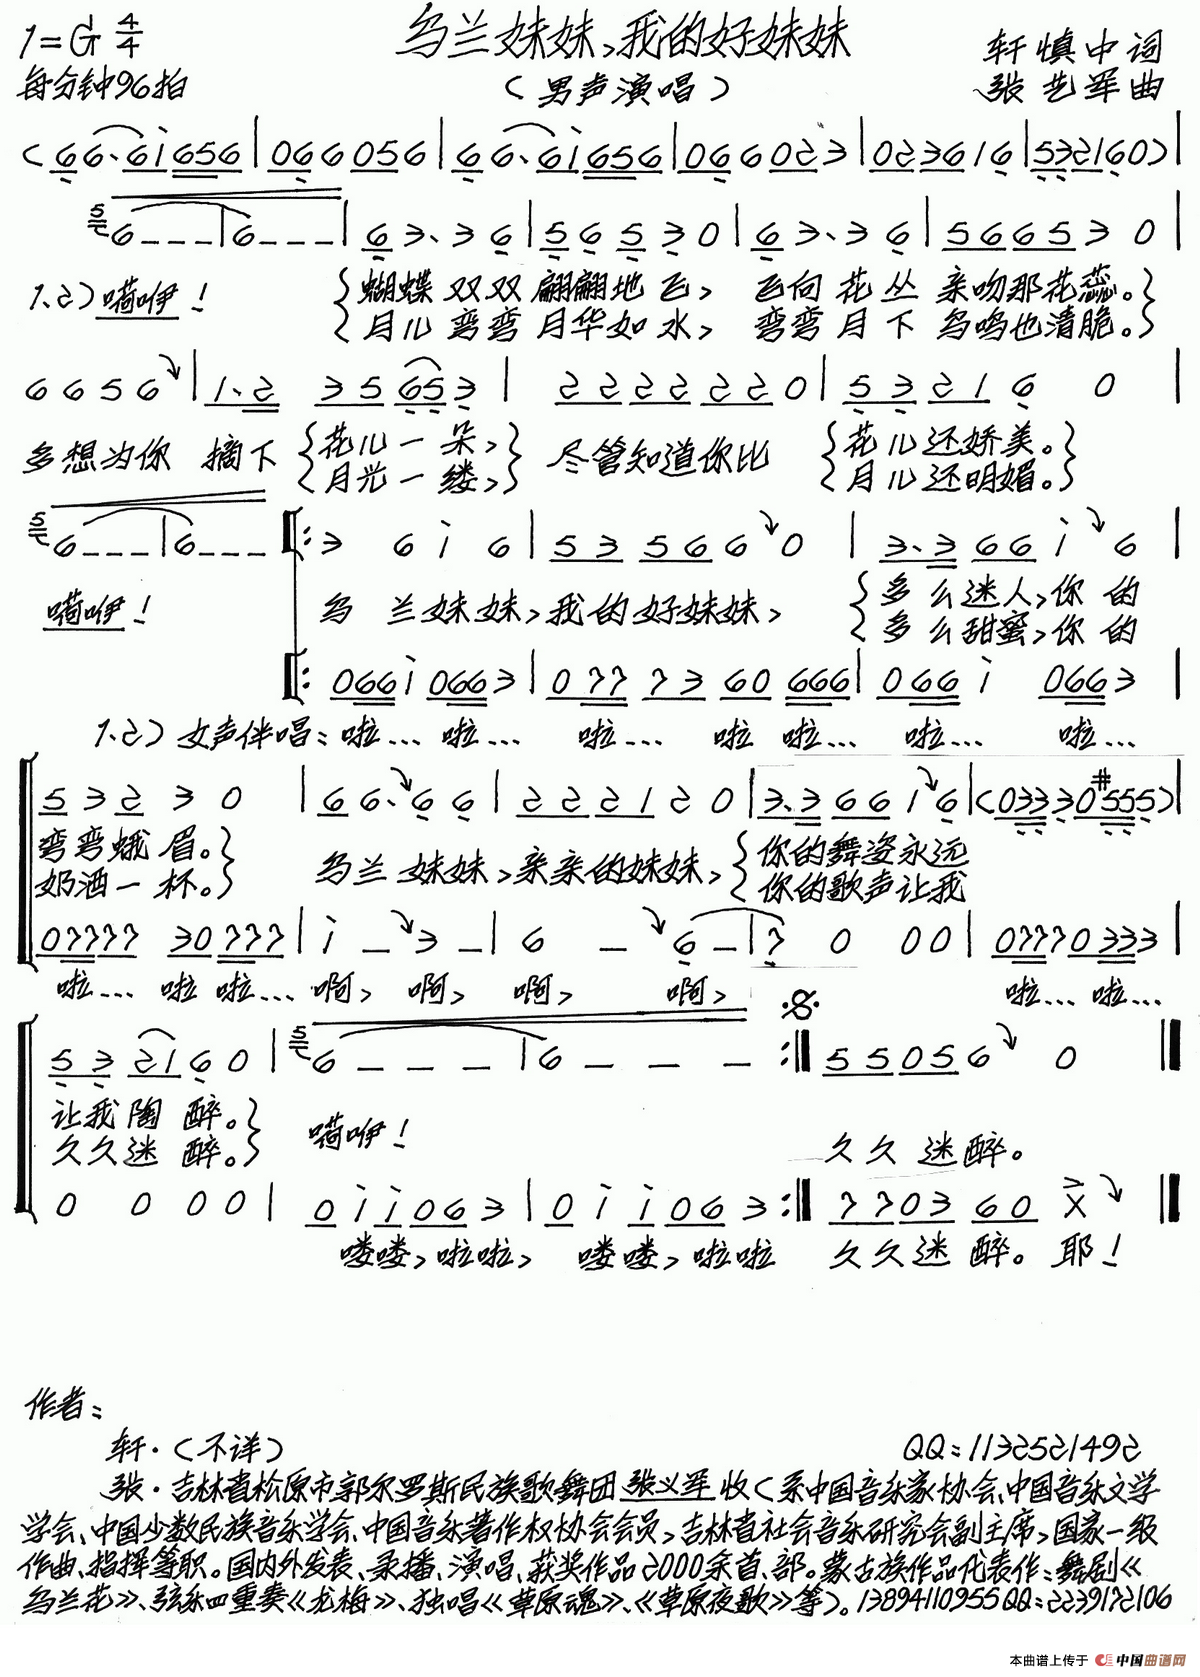 1=G 4/4
乌兰妹妹,我的好妹妹
轩慎中词
每分钟96拍
(男声演唱)
张艺军曲
1.2)嗬咿!
蝴蝶双双翩翩地飞, 飞向花丛亲吻那花蕊。
月儿弯弯月华如水, 弯弯月下鸟鸣也清脆。
多想为你 摘下
花儿一朵,
月光一缕,
尽管知道你比
花儿还娇美。
月儿还明媚。
嗬咿!
乌兰妹妹,我的好妹妹,
多么迷人,你的
多么甜蜜,你的
1.2)女声伴唱:啦… 啦… 啦… 啦 啦… 啦… 啦…
弯弯蛾眉。
奶酒一杯。
乌兰妹妹,亲亲的妹妹,
你的舞姿永远
你的歌声让我
啦… 啦 啦… 啊, 啊, 啊, 啊, 啦… 啦…
让我陶醉。
久久迷醉。
嗬咿!
久久迷醉。
喽喽,啦啦, 喽喽,啦啦 久久迷醉。耶!
作者:
轩·(不详)
QQ:1132521492
张·吉林省松原市郭尔罗斯民族歌舞团张义军收(系中国音乐家协会、中国音乐文学
学会、中国少数民族音乐学会、中国音乐著作权协会会员,吉林省社会音乐研究会副主席,国家一级
作曲、指挥等职。国内外发表、录播、演唱、获奖作品2000余首、部。蒙古族作品代表作:舞剧《
乌兰花》、弦乐四重奏《龙梅》、独唱《草原魂》、《草原夜歌》等)。13894110955QQ:2239172106
本曲谱上传于 中国曲谱网